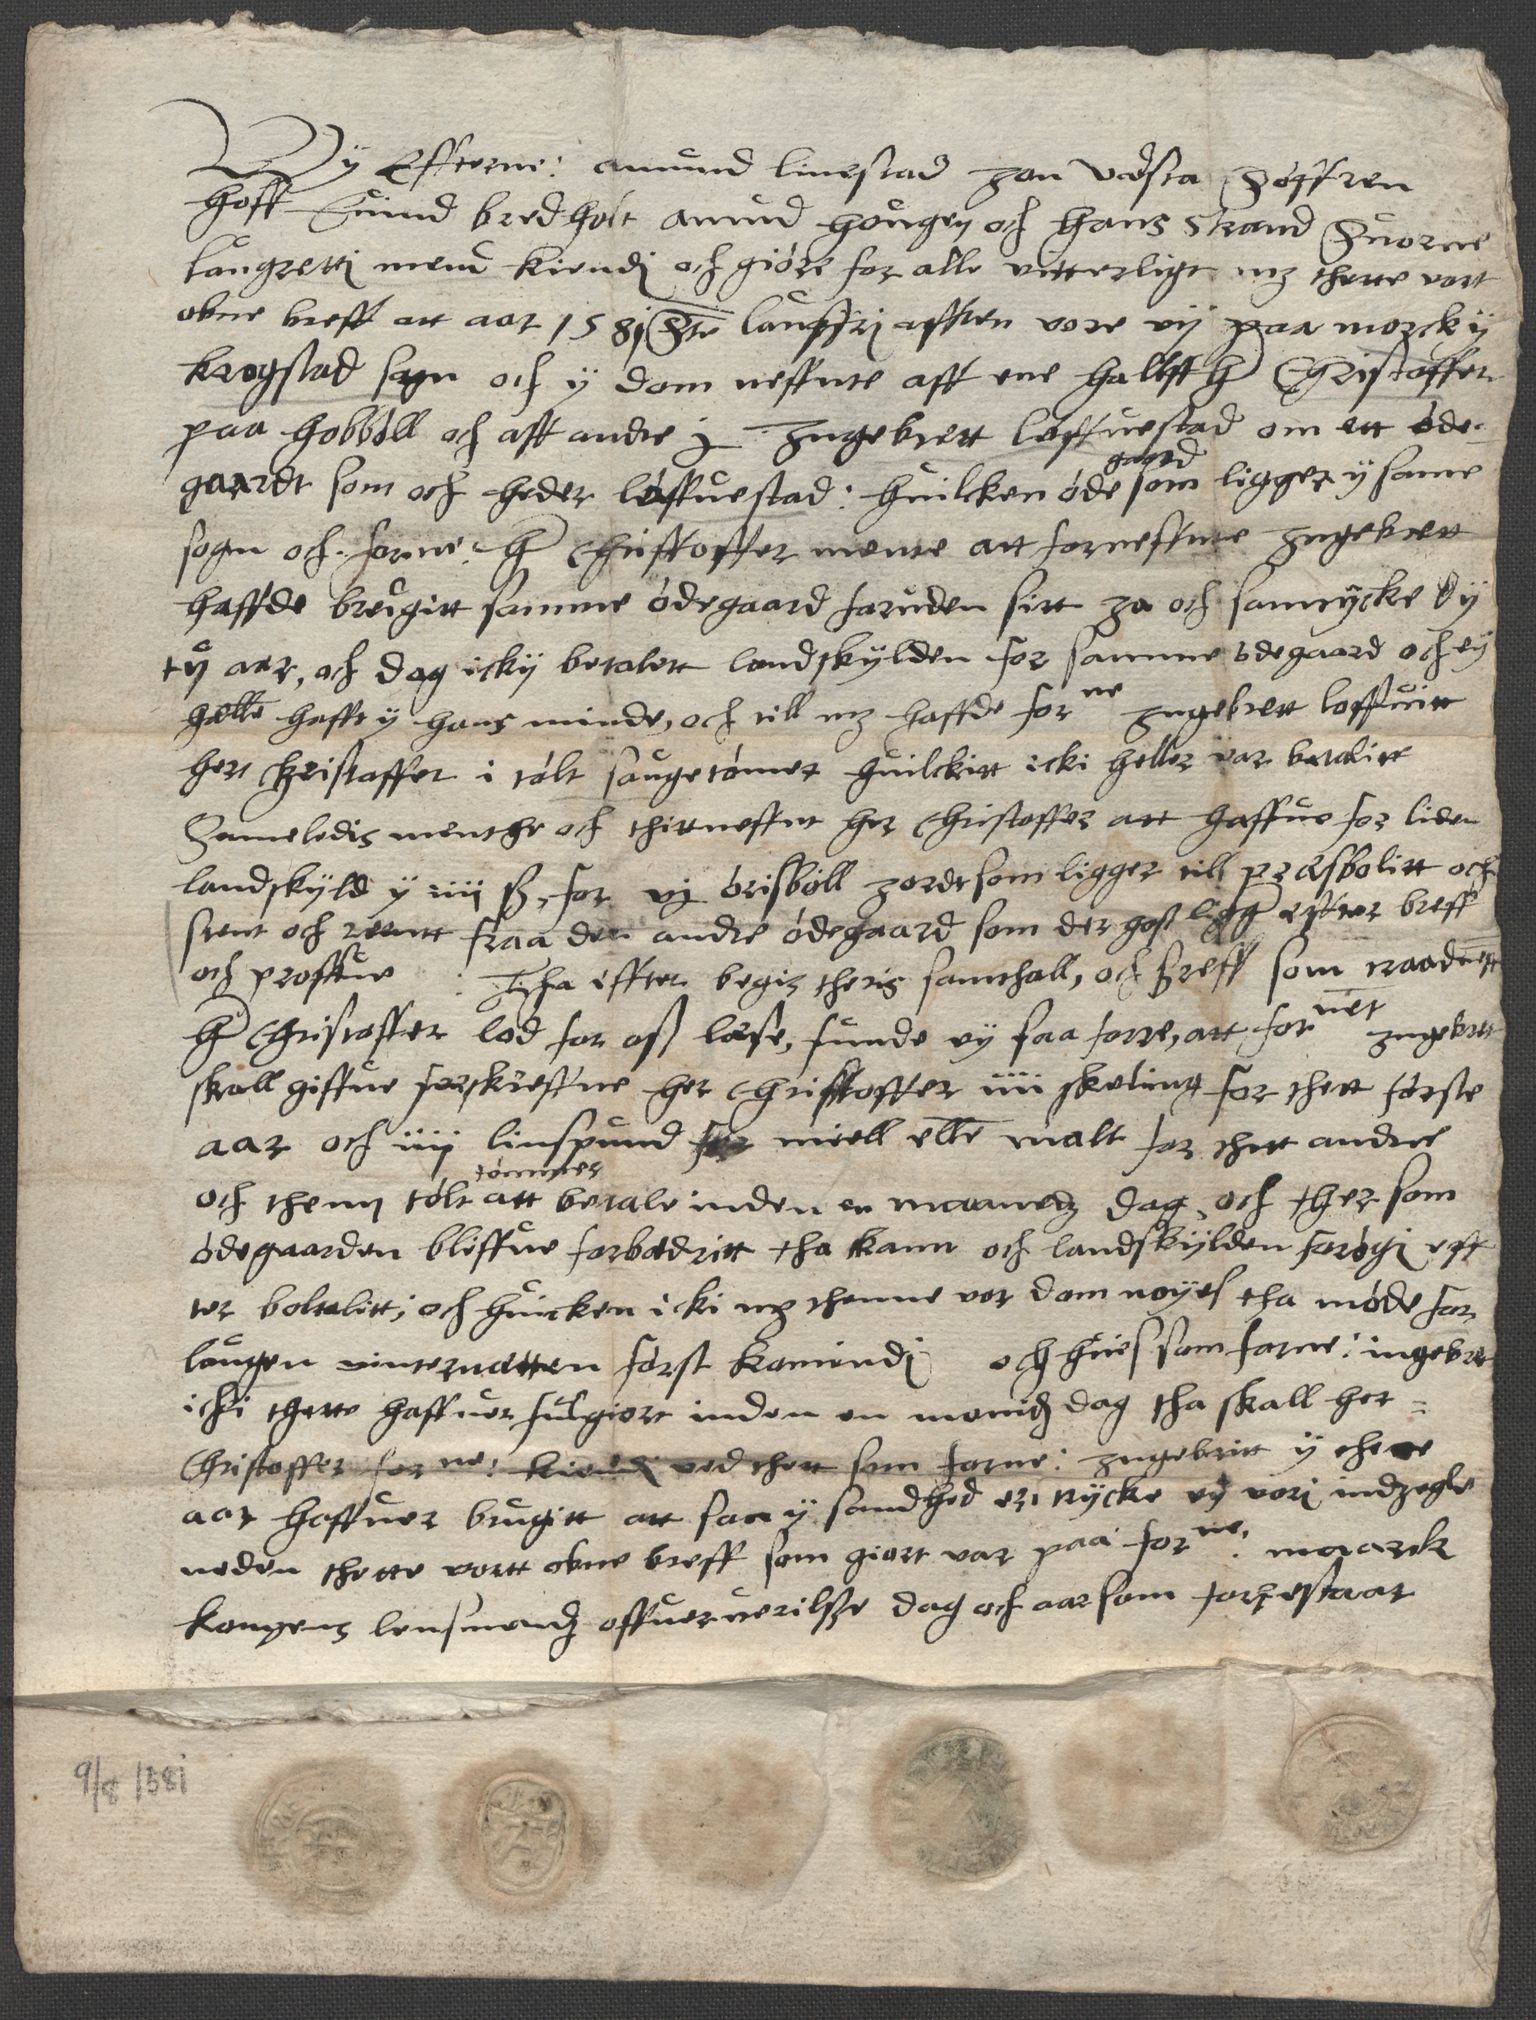 Wy Effterne: amund linestad jon vdsta Søffren
hoff Suind bredholt amud hougen och hans strand Suorne
laugretti mend kiendj och giøre for alle vitterligt mz thette vort
obne breff att aar 1581 Ste laufritz afften vore vij paa morck ij
krogstad sogn och y dom neffnte aff ene hallfft h Christoffer
paa hobbøll och aff andre j Ingebrett løffuestad om ett øde
gaardt som och heder løffuestad: huilcken øde gaard som ligger y same
sogn och forne: h Christoffer mente att forneffnte Ingebrett
haffde brugitt samme ødegaard foruden sitt ja och samtycke y
ty aar, och dog icky betalett landskylden for samme ødegaard och ey
helle hafft y hans minde, och till mz haffde forne Ingebrett loffuitt
herr Christoffer i tølt saugetømer huilckitt icki heller var betalitt
Sameledis menthe och thitneffnt her Christoffer att haffue for liden
landskyld y iiii ß, for vj ørisbøll jordt som ligger till præsbolitt och
stent och reentt fraa den andre ødegaard som der hoß ligger effter breff
och proffue : Tha effter begis theris samthall, och breff som
h Christoffer lod for oß læse, funde vy saa forre, att fornet Ingebrett
skall giffue forskreffne her Christoffer iiii skeling for thett første
aar och iiij linspund meell elle malt for thett andre
och them tølt tømmer att betale inden en maanetz dag, och ther som
ødegaarden bliffue forbædritt tha kann och landskylden forøgi eff
ter boltalitt; och huicken icki mz thenne vor dom nøyes tha møde for
laugen vinternætten først komendj och hues som forne: ingebret
icki thette haffuer fulgiort inden en monitz dag tha skall her
Christoffer forne: kiendj ved thett som forne: Ingebritt y thette
aar haffuer brugitt att saa y sandhed er, trycke vy vori indzegle
neden thette vortt obne breff som giort var paa forne. maarck
kongens lensmandz offueruerilsse dag och aar som forrestaar
9/8 1581